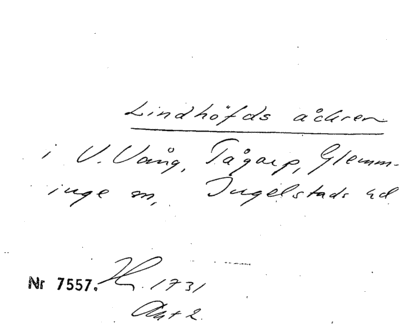 Lindhöfds åkren
i V. Vång, Tågarp, Glemm-
inge sn, Ingelstads hd
Nr 7557. H. 1731
Akt 2.